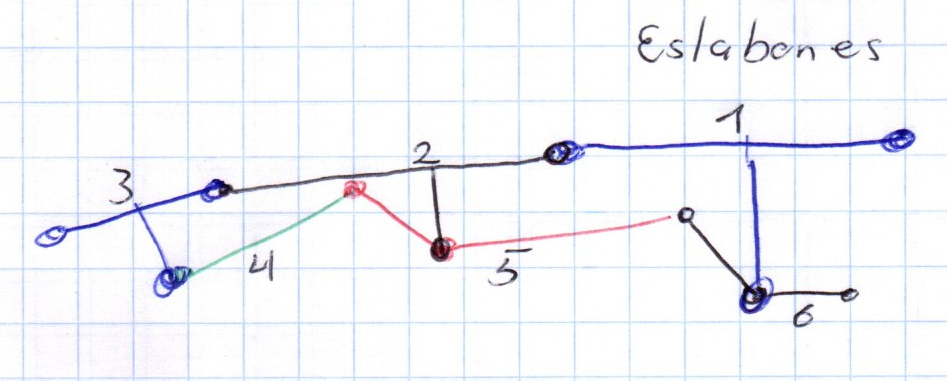 Eslabones
1
2
3
4
5
6